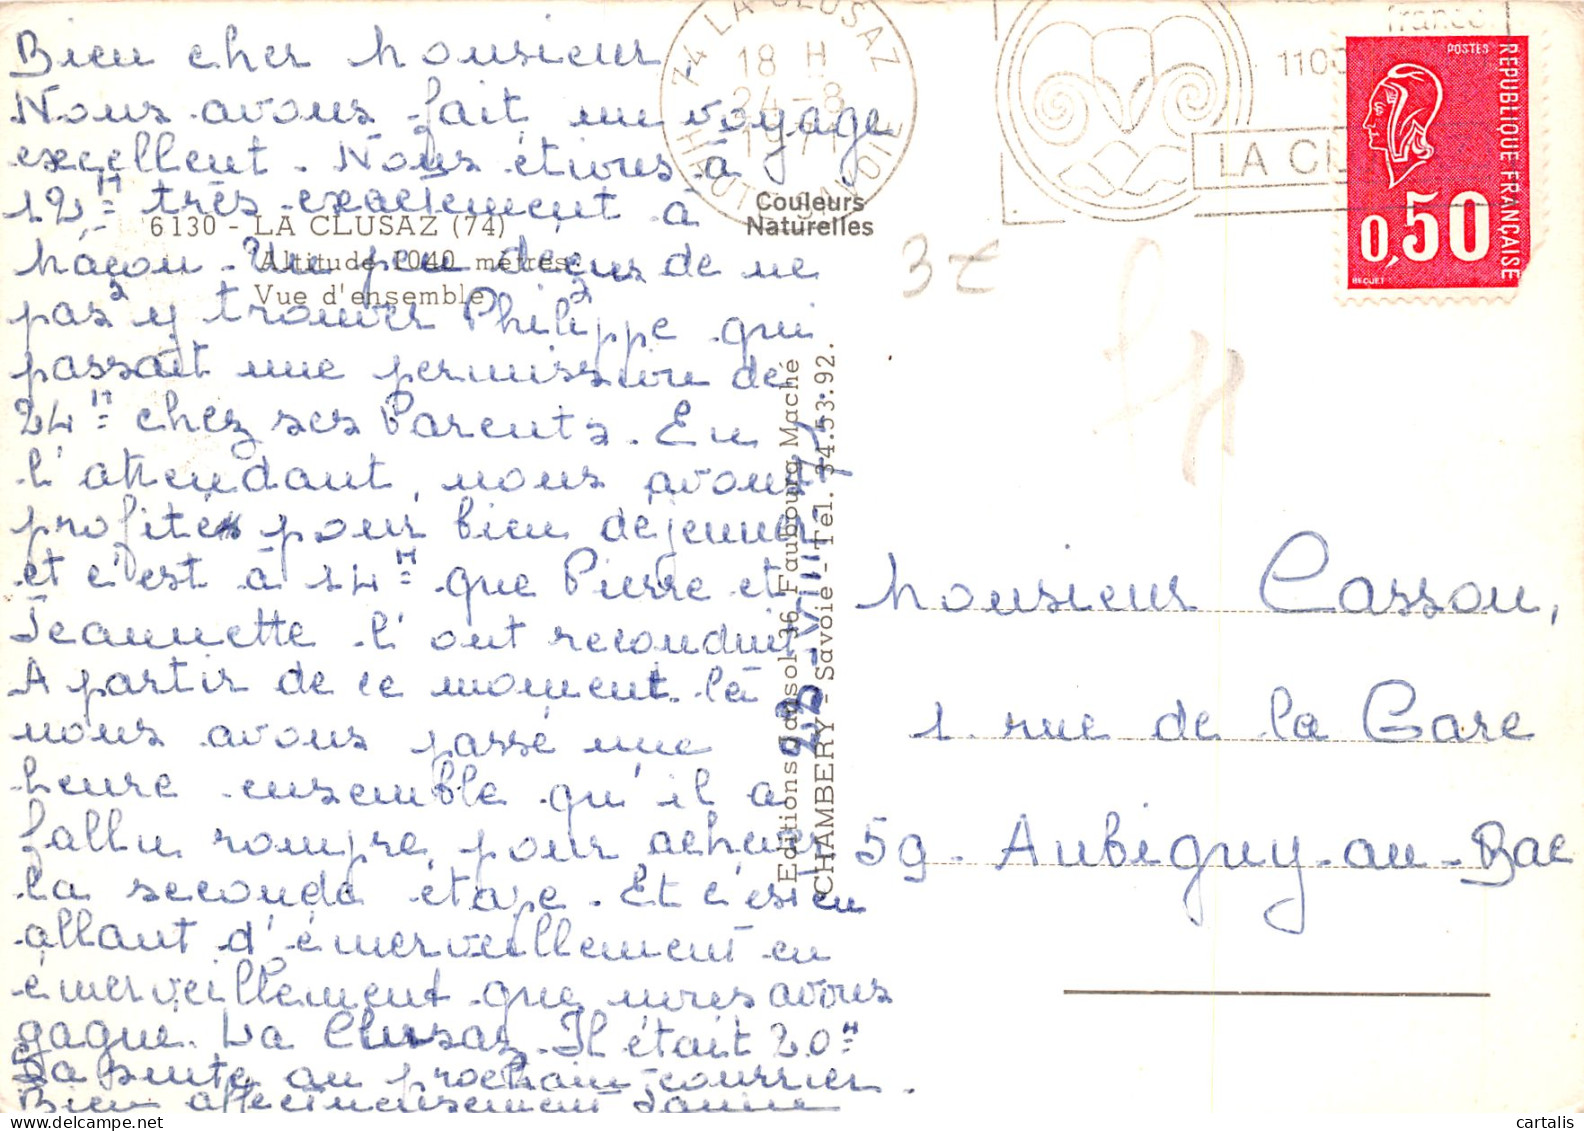 Bien cher Monsieur,
Nous avons fait un voyage
excellent. Nous étions à
12H très exactement à
Mâcon. Un peu déçus de ne
pas y trouver Philippe qui
passait une permission de
24H chez ses Parents. En
l'attendant, nous avons
profité pour bien déjeuner
et c'est à 14H que Pierre et
Jeannette l'ont reconduit.
A partir de ce moment là
nous avons passé une
heure ensemble qu'il a
fallu rompre pour achever
la seconde étape. Et c'est en
allant d'émerveillement en
émerveillement que nous avons
gagné La Clusaz. Il était 20H
La suite au prochain courrier.
Bien affectueusement
6130 - LA CLUSAZ (74)
Altitude 1040 mètres
Vue d'ensemble
Couleurs
Naturelles
74 LA CLUSAZ
18 H
24-8
HAUTE SAVOIE
LA CL
POSTES
REPUBLIQUE FRANÇAISE
0,50
BEQUET
3 €
Editions 36, Faubourg Maché
CHAMBERY - Savoie - Tél. 34.53.92.
Monsieur Cassou,
1 rue de la Gare
59. Aubigny-au-Bac
cartalis